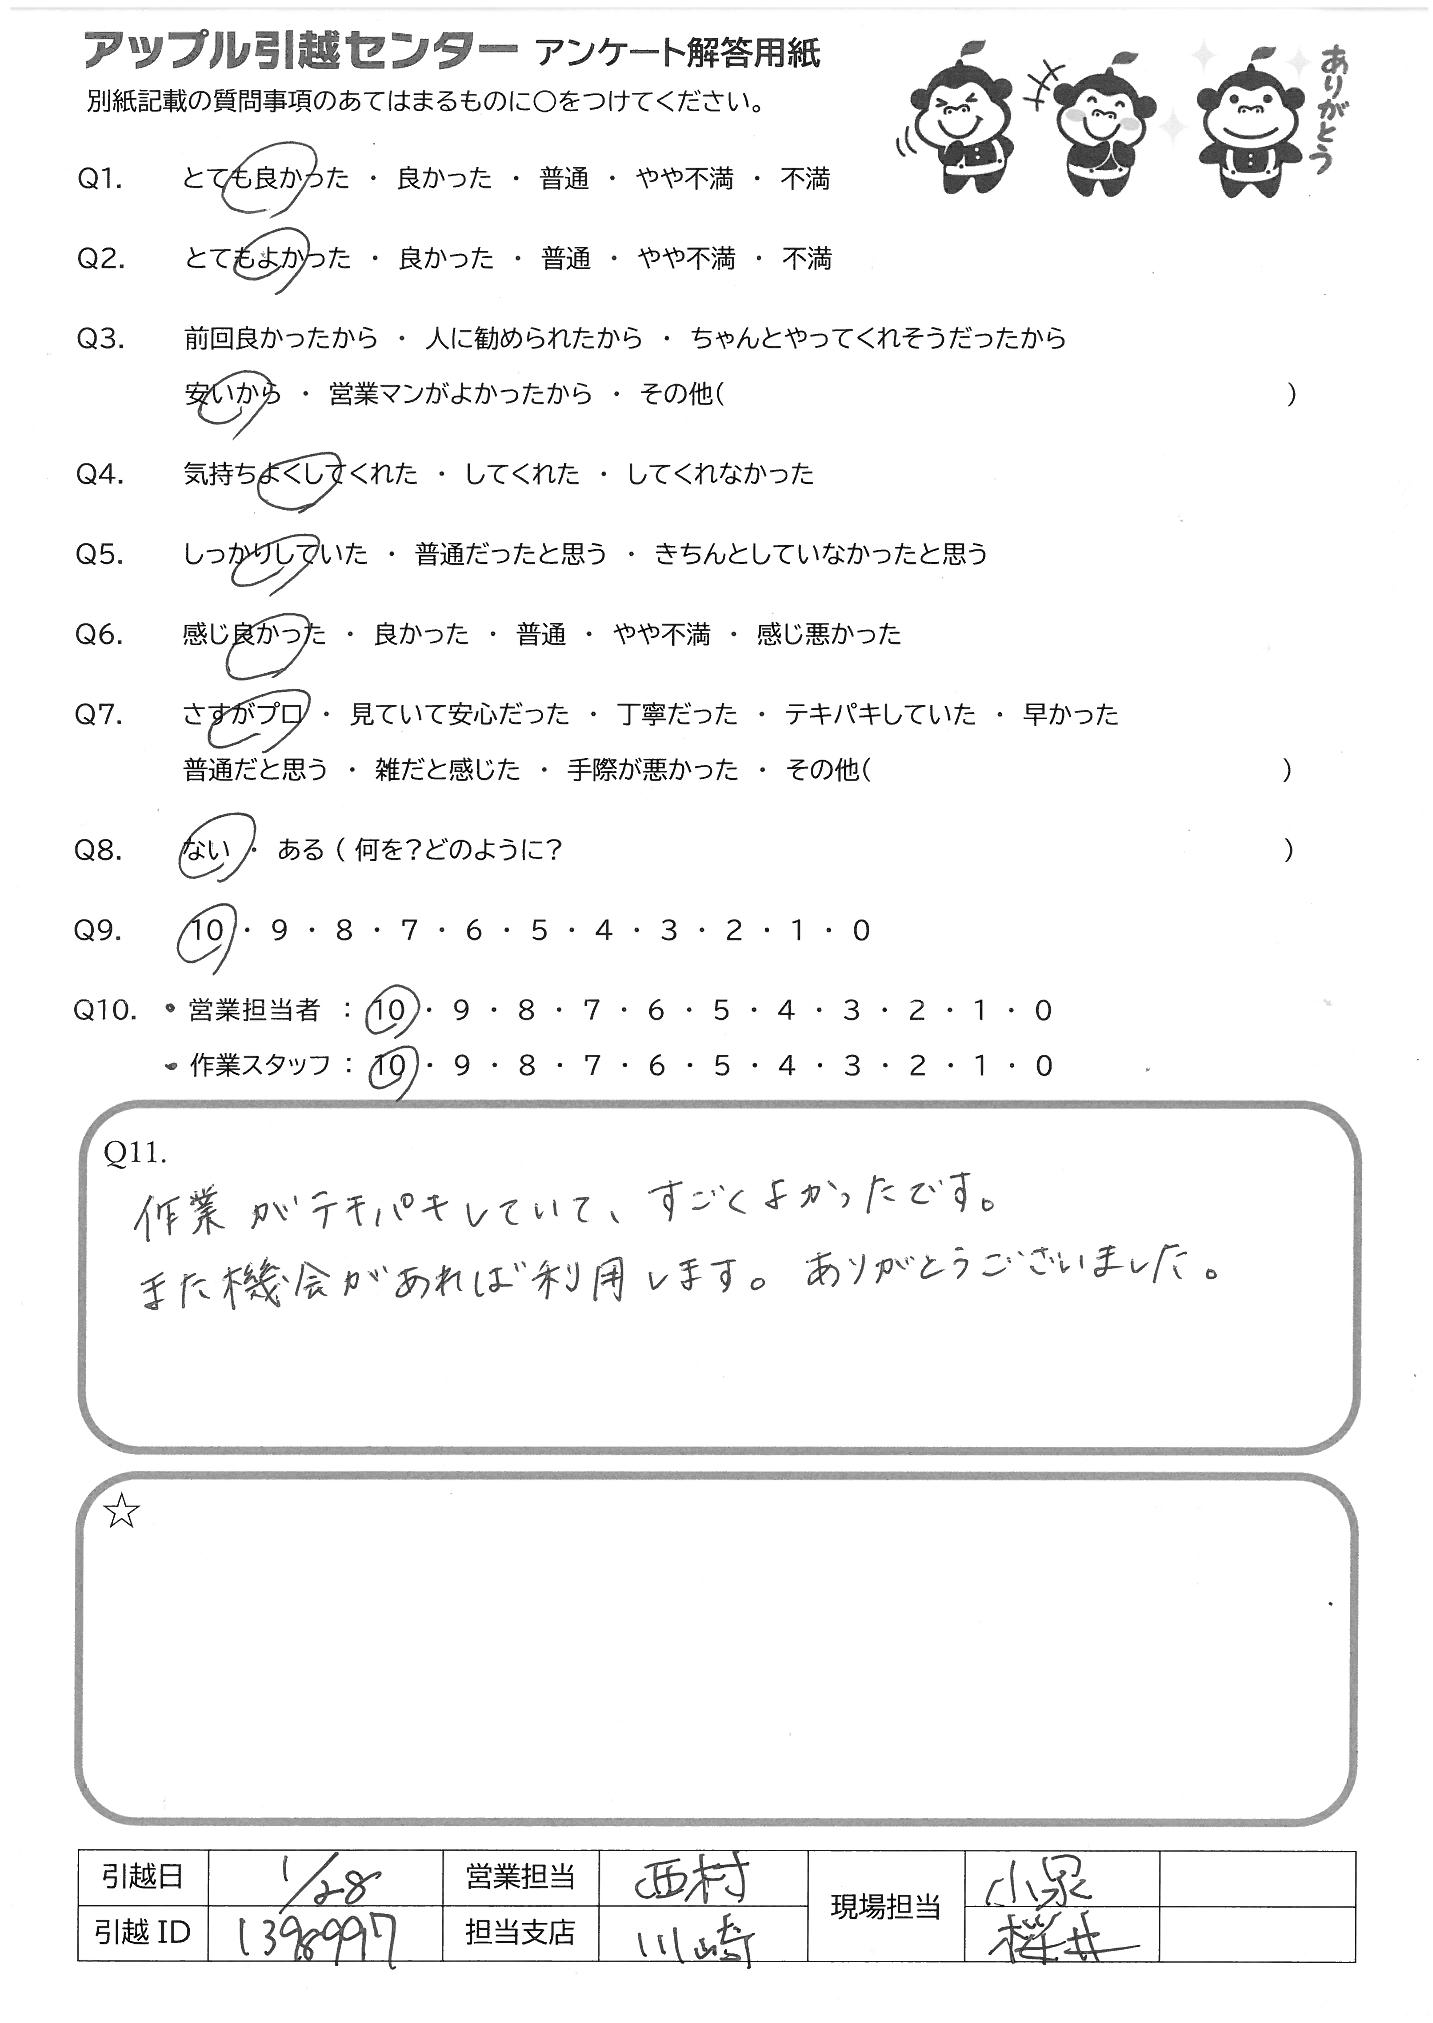 アップル引越センター アンケート解答用紙
別紙記載の質問事項のあてはまるものに○をつけてください。
ありがとう
Q1. とても良かった ・ 良かった ・ 普通 ・ やや不満 ・ 不満
Q2. とてもよかった ・ 良かった ・ 普通 ・ やや不満 ・ 不満
Q3. 前回良かったから ・ 人に勧められたから ・ ちゃんとやってくれそうだったから
安いから ・ 営業マンがよかったから ・ その他( )
Q4. 気持ちよくしてくれた ・ してくれた ・ してくれなかった
Q5. しっかりしていた ・ 普通だったと思う ・ きちんとしていなかったと思う
Q6. 感じ良かった ・ 良かった ・ 普通 ・ やや不満 ・ 感じ悪かった
Q7. さすがプロ ・ 見ていて安心だった ・ 丁寧だった ・ テキパキしていた ・ 早かった
普通だと思う ・ 雑だと感じた ・ 手際が悪かった ・ その他( )
Q8. ない ・ ある ( 何を?どのように? )
Q9. 10 ・ 9 ・ 8 ・ 7 ・ 6 ・ 5 ・ 4 ・ 3 ・ 2 ・ 1 ・ 0
Q10. • 営業担当者 : 10 ・ 9 ・ 8 ・ 7 ・ 6 ・ 5 ・ 4 ・ 3 ・ 2 ・ 1 ・ 0
• 作業スタッフ : 10 ・ 9 ・ 8 ・ 7 ・ 6 ・ 5 ・ 4 ・ 3 ・ 2 ・ 1 ・ 0
Q11.
作業がテキパキしていて、すごくよかったです。
また機会があれば利用します。ありがとうございました。
☆
引越日 1/28 営業担当 西村 現場担当 小泉
引越 ID 1398997 担当支店 川崎 桜井